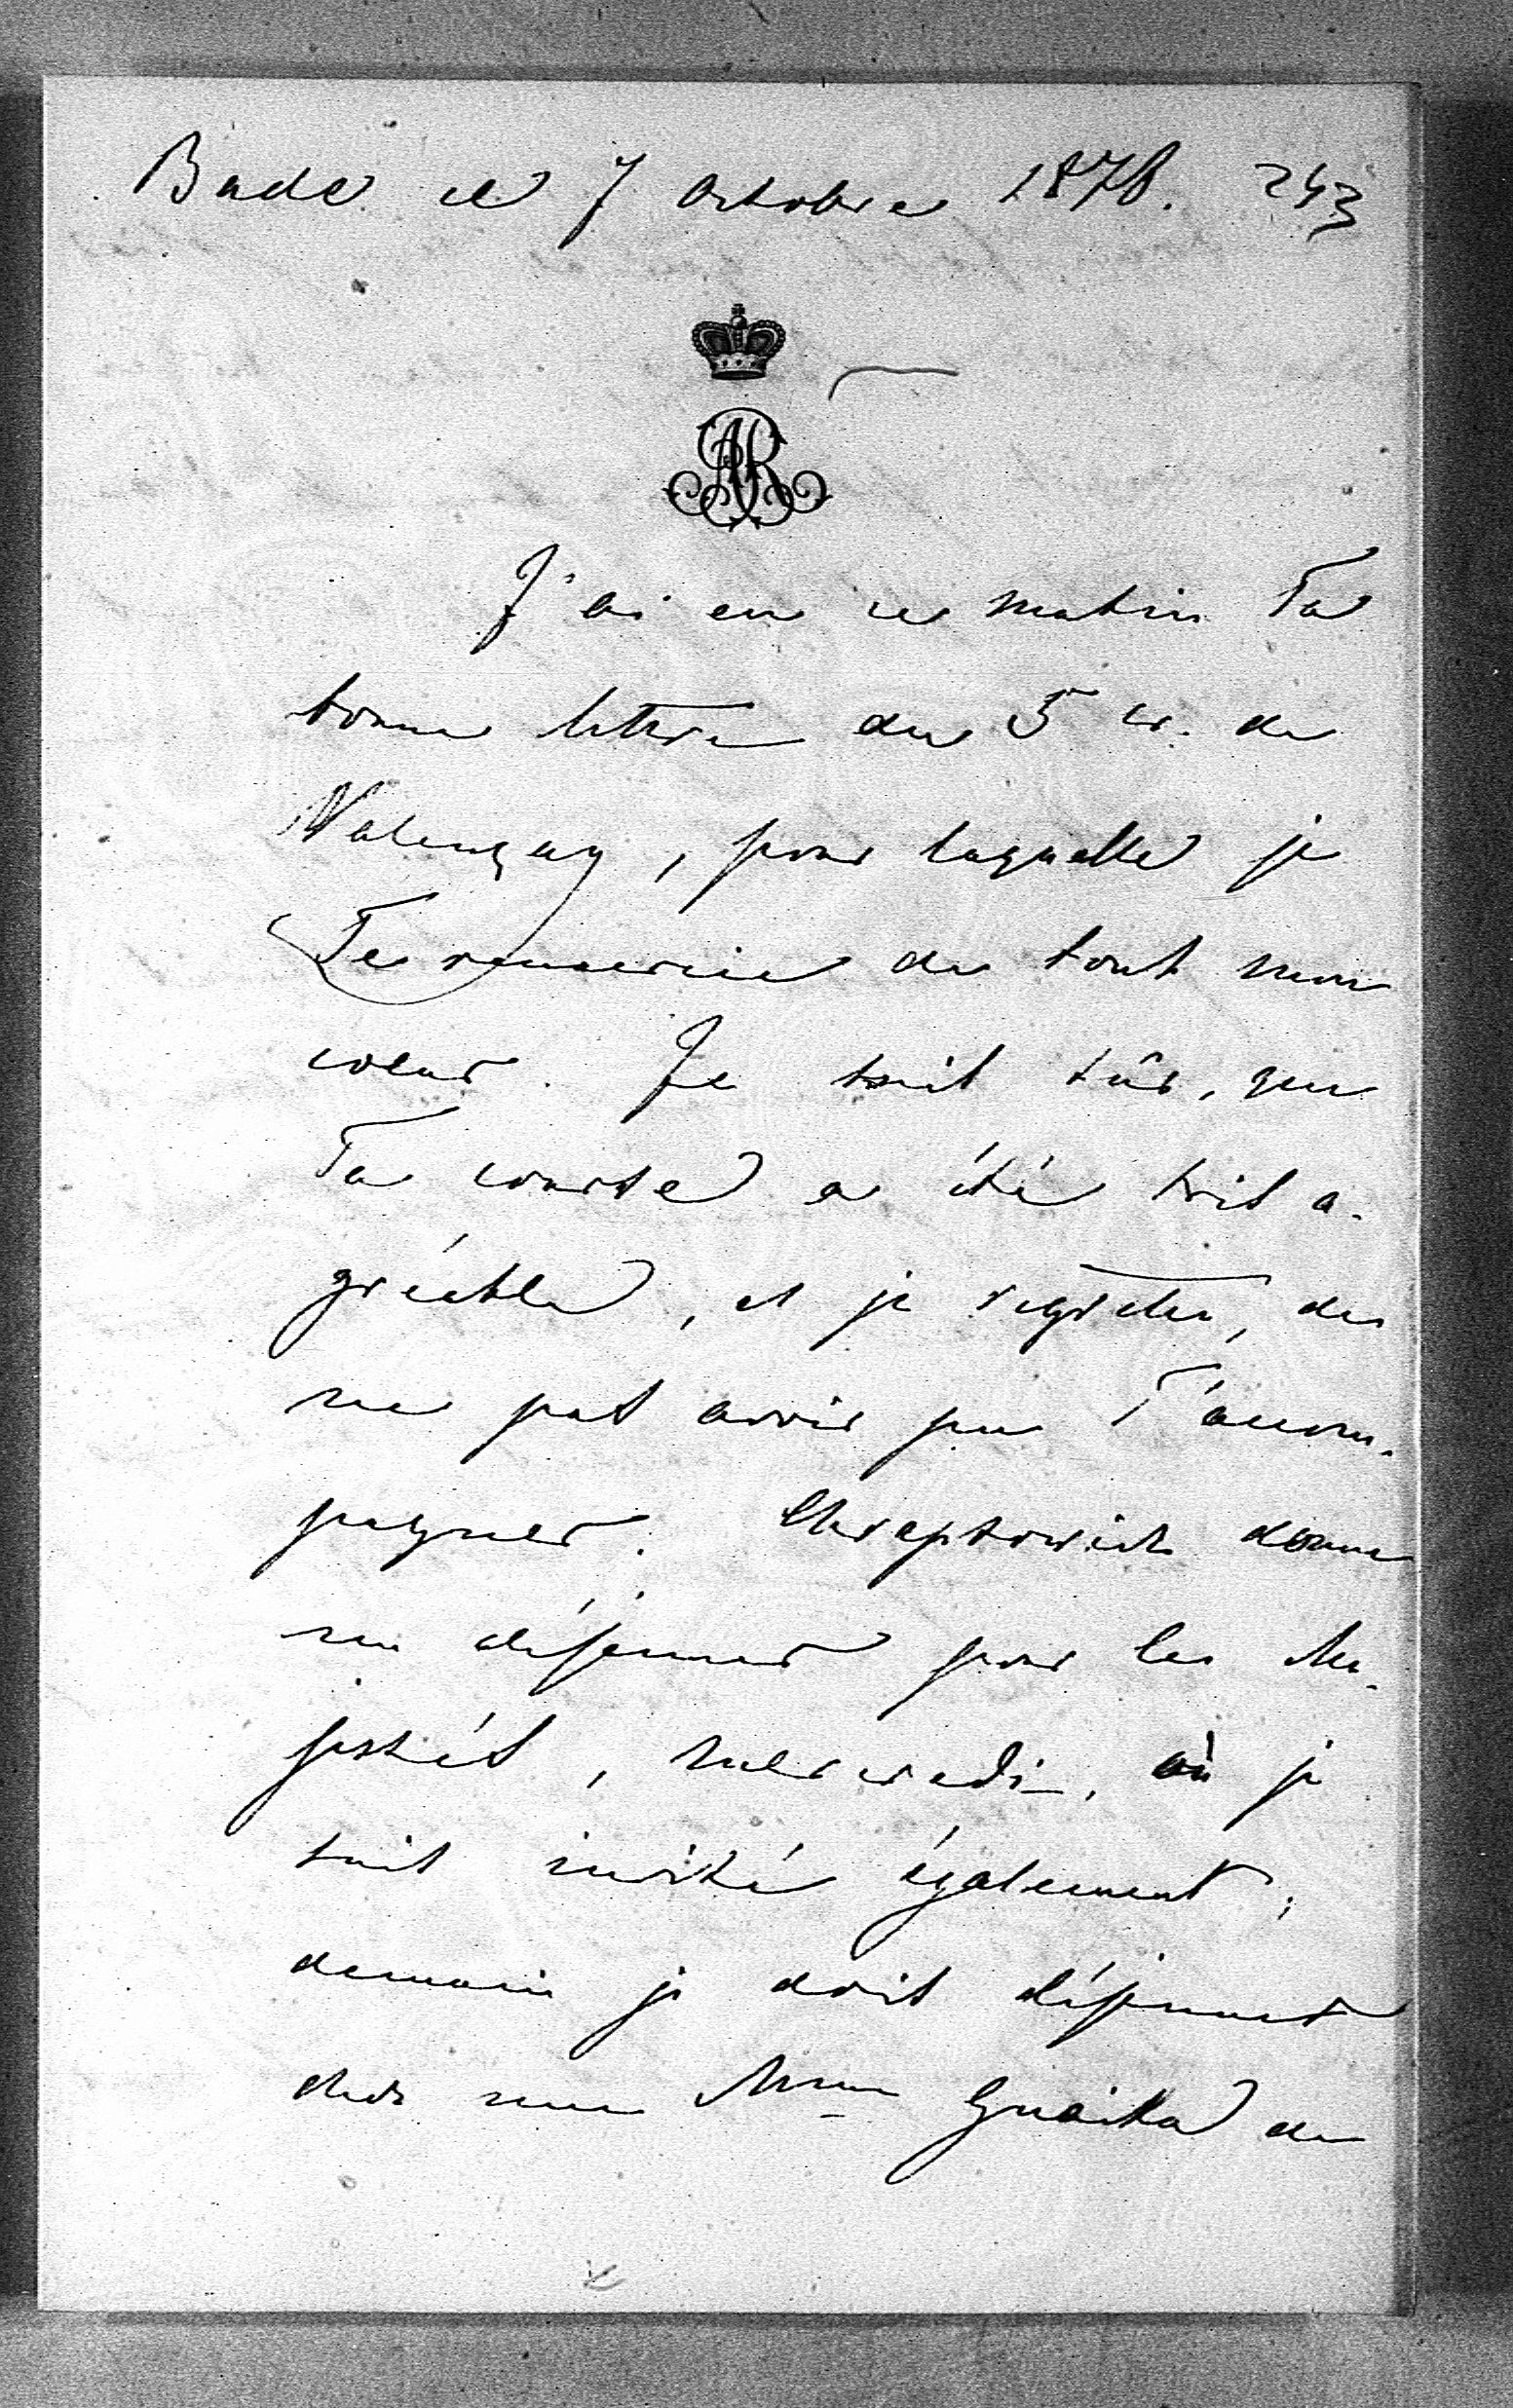 Bade ce 7 Octobre 1878. 243
AR
J'ai eu ce matin Ta
bonne lettre du 5 cr. de
Valençay, pour laquelle je
Te remercie de tout mon
coeur. Je suis sûr, que
Ta course a été très a-
gréable, et je regrette, de
ne pas avoir pu T'accom-
pagner. Chreptowich donne
un déjeuner pour les Ma-
jestés, mercredi, où je
suis invité également;
demain je dois déjeuner
chez une Mme Guaita de